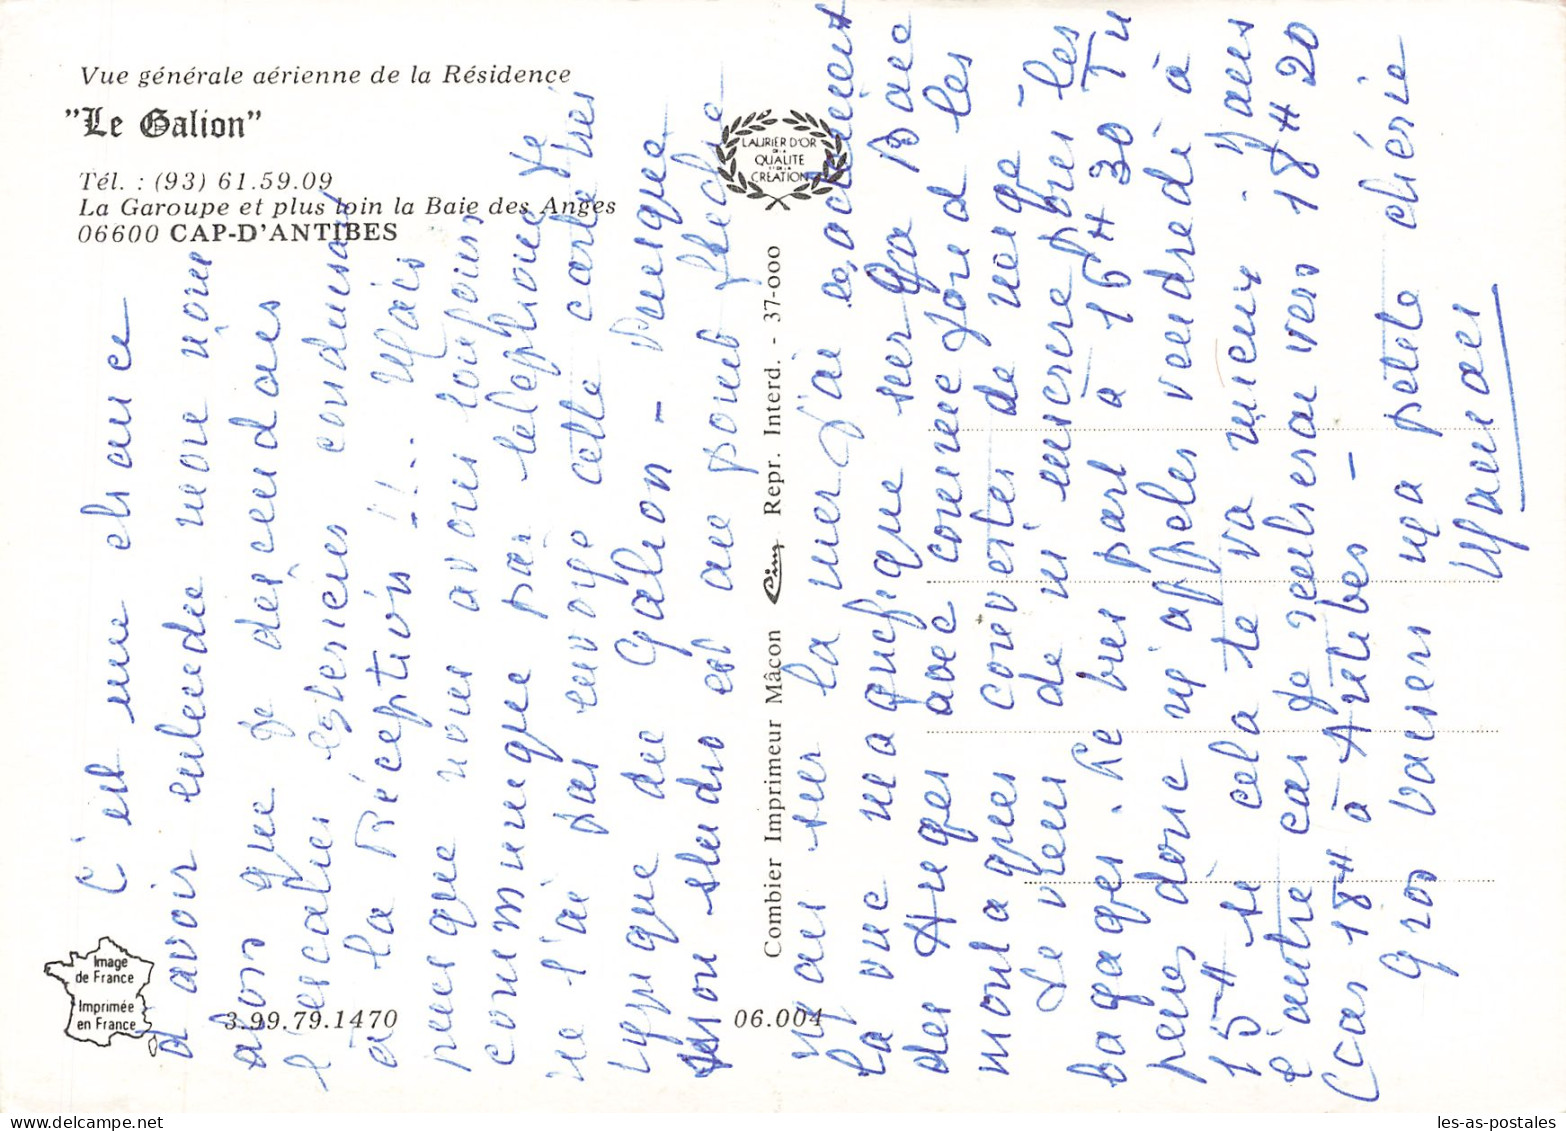 Vue générale aérienne de la Résidence
"Le Galion"
Tél. : (93) 61.59.09
La Garoupe et plus loin la Baie des Anges
06600 CAP-D'ANTIBES
LAURIER D'OR
DE LA
QUALITE
ET DE LA
CREATION
Image
de France
Imprimée
en France
3.99.79.1470
06.004
Combier Imprimeur Mâcon Cim Repr. Interd. - 37-000
C'est une chance
d'avoir entendu mon nom
alors que je descendais
l'escalier extérieur conduisant
à la Réception !!.. Mais
puisque nous avons toujours
communiqué par téléphone je
ne t'ai pas envoyé cette carte très
typique du Galion - Puisque
mon studio est au point flèche
mais sur la mer j'ai exactement
la vue magnifique sur la Baie
des Anges avec comme fond les
montagnes couvertes de neige -
Je viens de m'inscrire pour les
bagages. Le bus part à 16H30 Tu
peux donc m'appeler vendredi à
15H si cela te va mieux. Dans
l'autre cas je rentrerai vers 18H20
(car 18H à Antibes -
Gros baisers ma petite chérie
Maman
les-as-postales